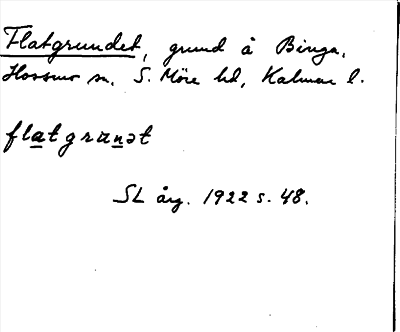 Flatgrundet, grund å Binga,
Hossmo sn, S. Möre hd, Kalmar l.
flatgranət
SL årg. 1922 s. 48.